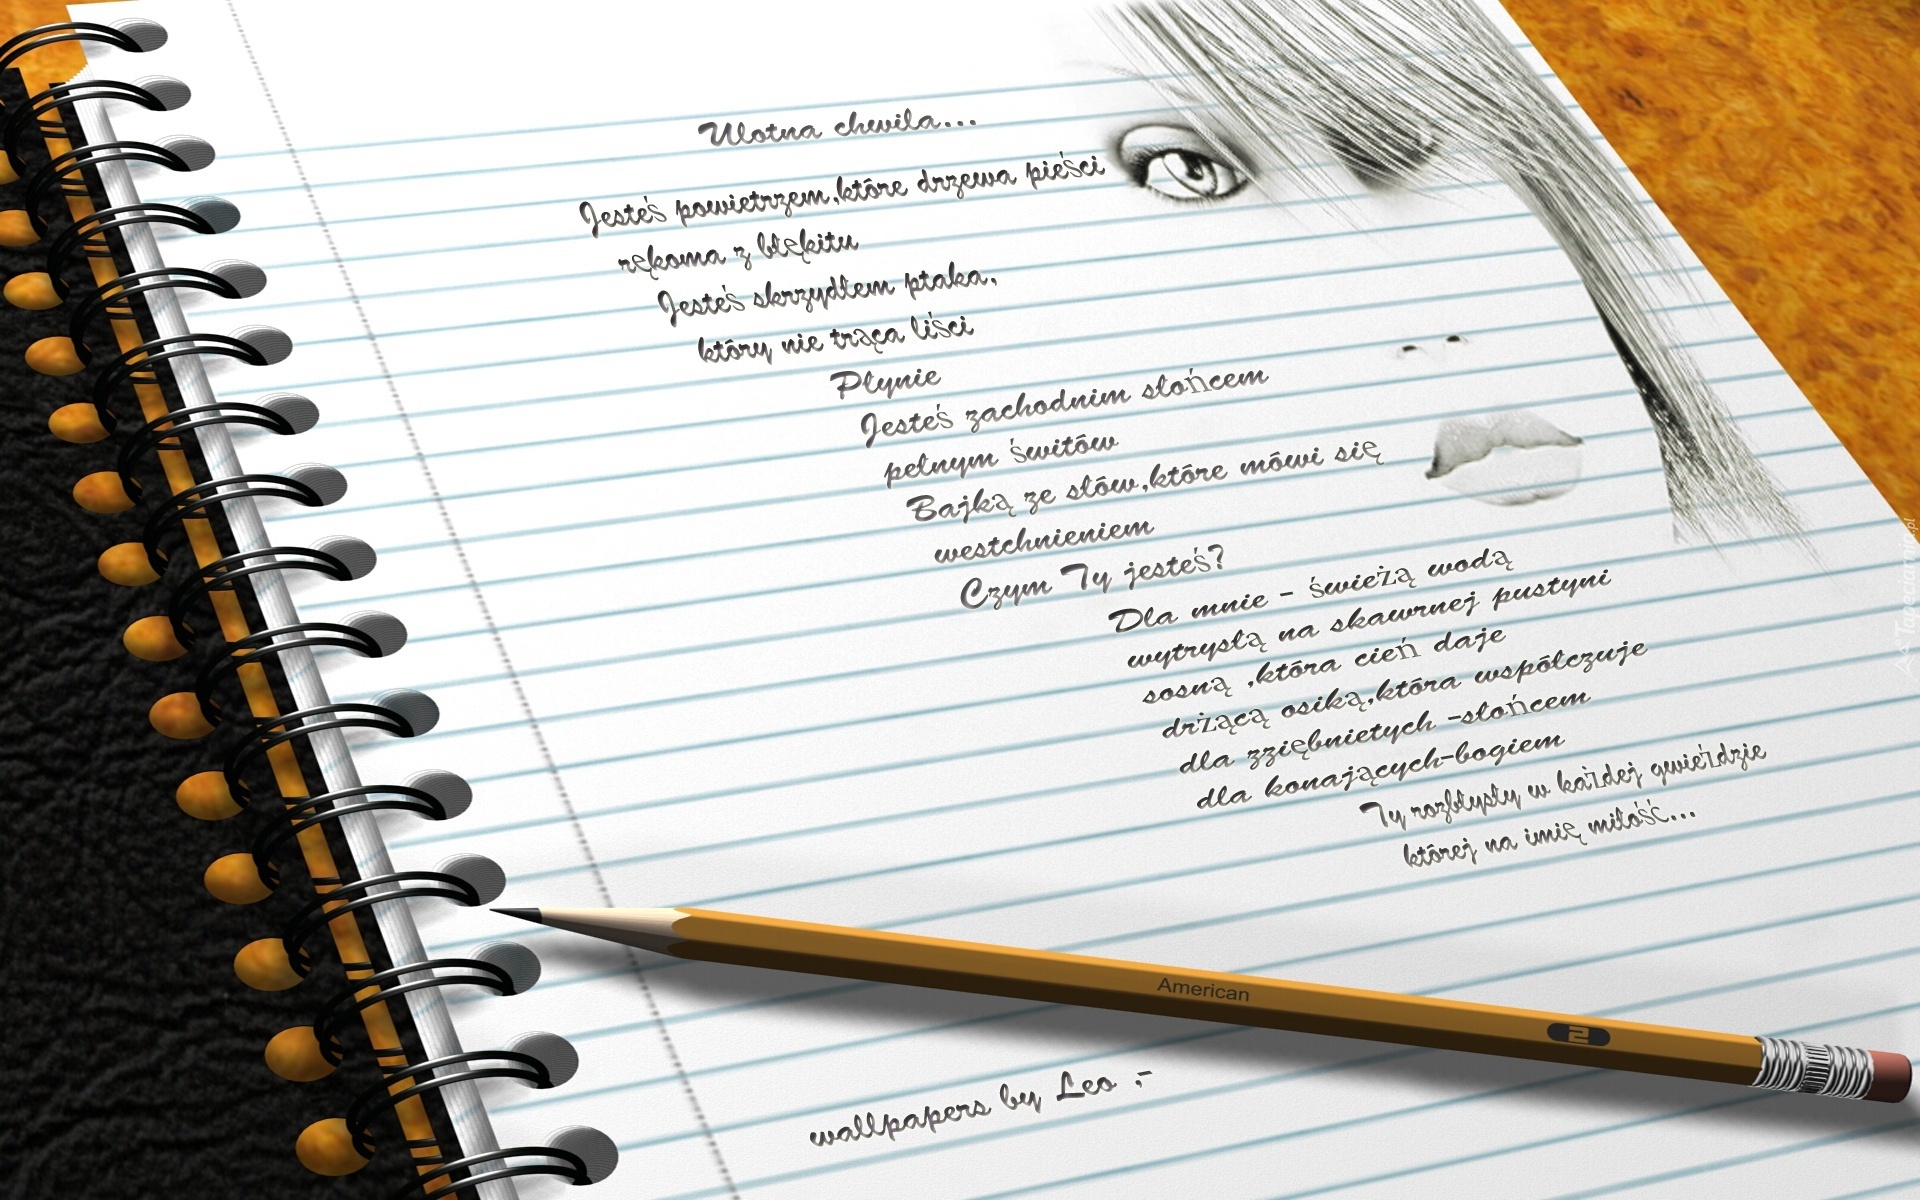 Ulotna chwila...
Jesteś powietrzem,które drzewa pieści
rękoma z błękitu
Jesteś skrzydłem ptaka,
który nie trąca liści
Płynie
Jesteś zachodnim słońcem
pełnym świtów
Bajką ze słów,które mówi się
westchnieniem
Czym Ty jesteś?
Dla mnie - świeżą wodą
wytrysłą na skawrnej pustyni
sosną ,która cień daje
drżącą osiką,która współczuje
dla zziębnietych -słońcem
dla konających-bogiem
Ty rozbłysły w każdej gwieździe
której na imię miłość...
American
2
wallpapers by Leo ;-
Tapeciarnia.pl